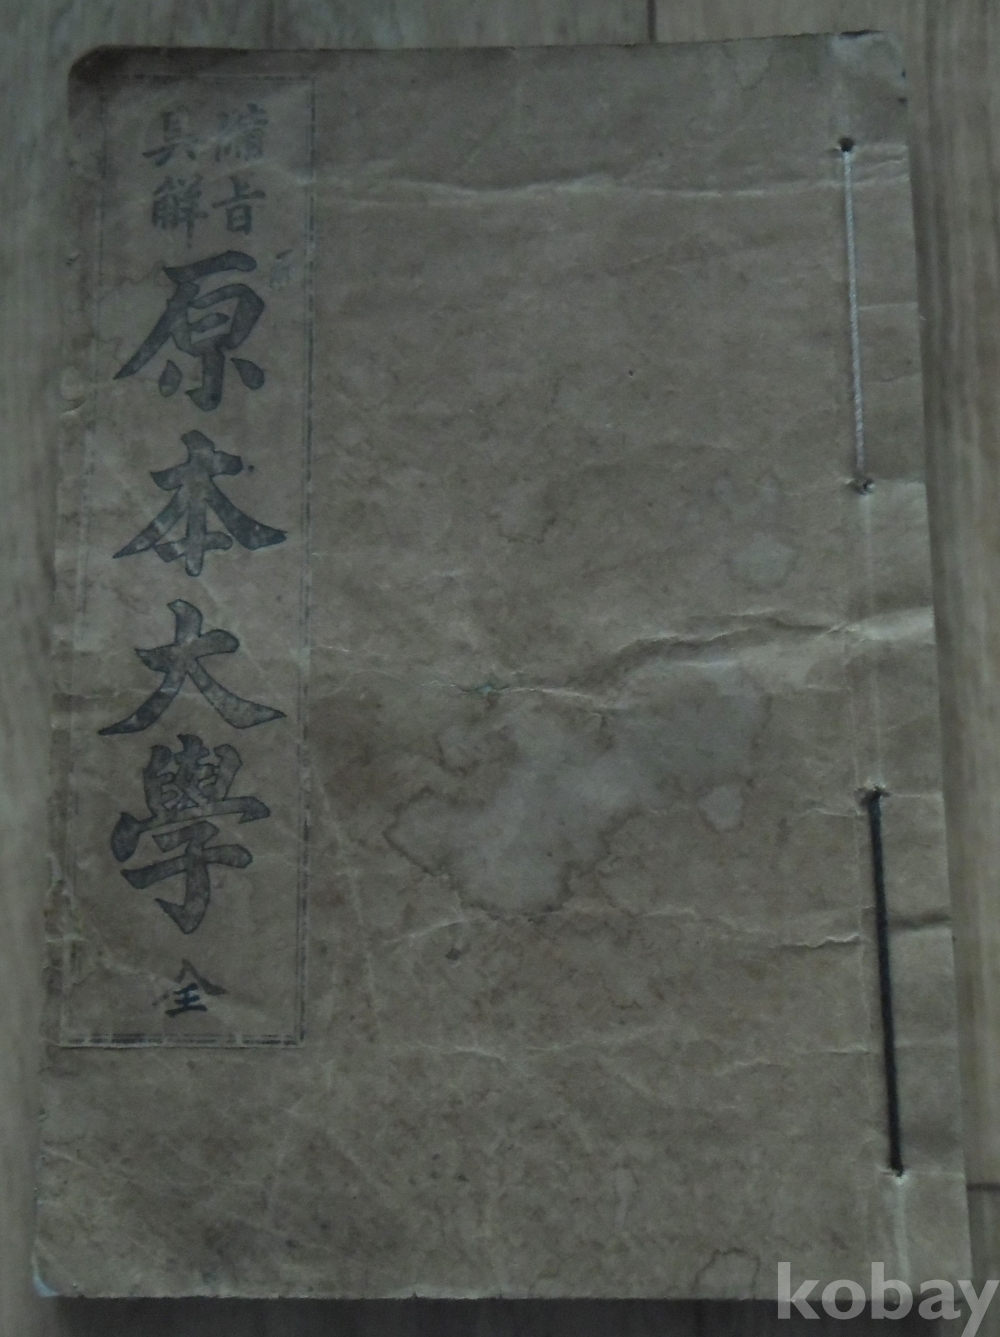 備旨
具解
原本大學
全
kobay